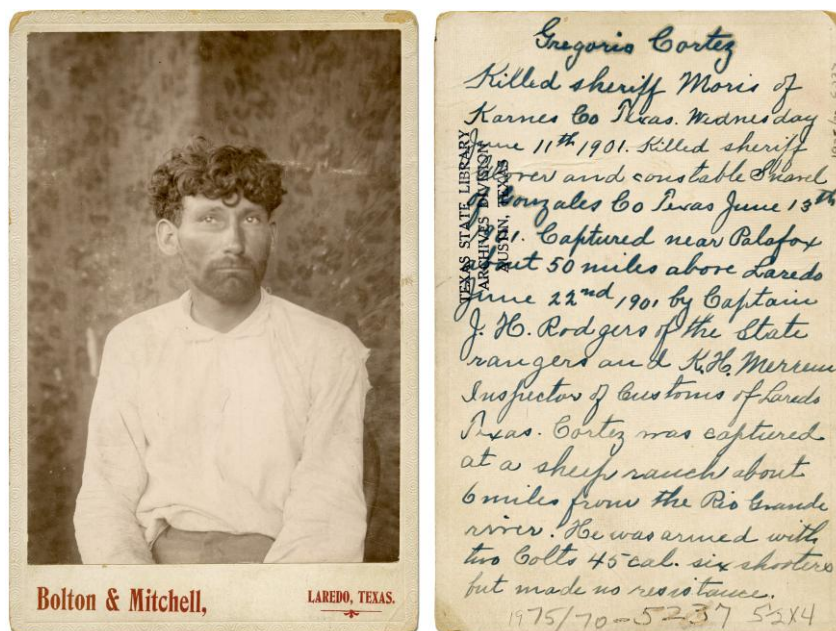 Bolton & Mitchell,
LAREDO, TEXAS.
Gregorio Cortez
Killed sheriff Moris of
Karnes Co Texas. Wednesday
June 11th 1901. Killed sheriff
and constable Snavel
of Gonzales Co Texas June 13th
Captured near Palafox
about 50 miles above Laredo
June 22nd 1901 by Captain
J. H. Rodgers of the State
rangers and K. H. Merrem
Inspector of Customs of Laredo
Texas. Cortez was captured
at a sheep ranch about
6 miles from the Rio Grande
river. He was armed with
two Colts 45 cal. six shooters
but made no resistance.
1975/70-5237 52X4
TEXAS STATE LIBRARY
ARCHIVES DIVISION
AUSTIN, TEXAS